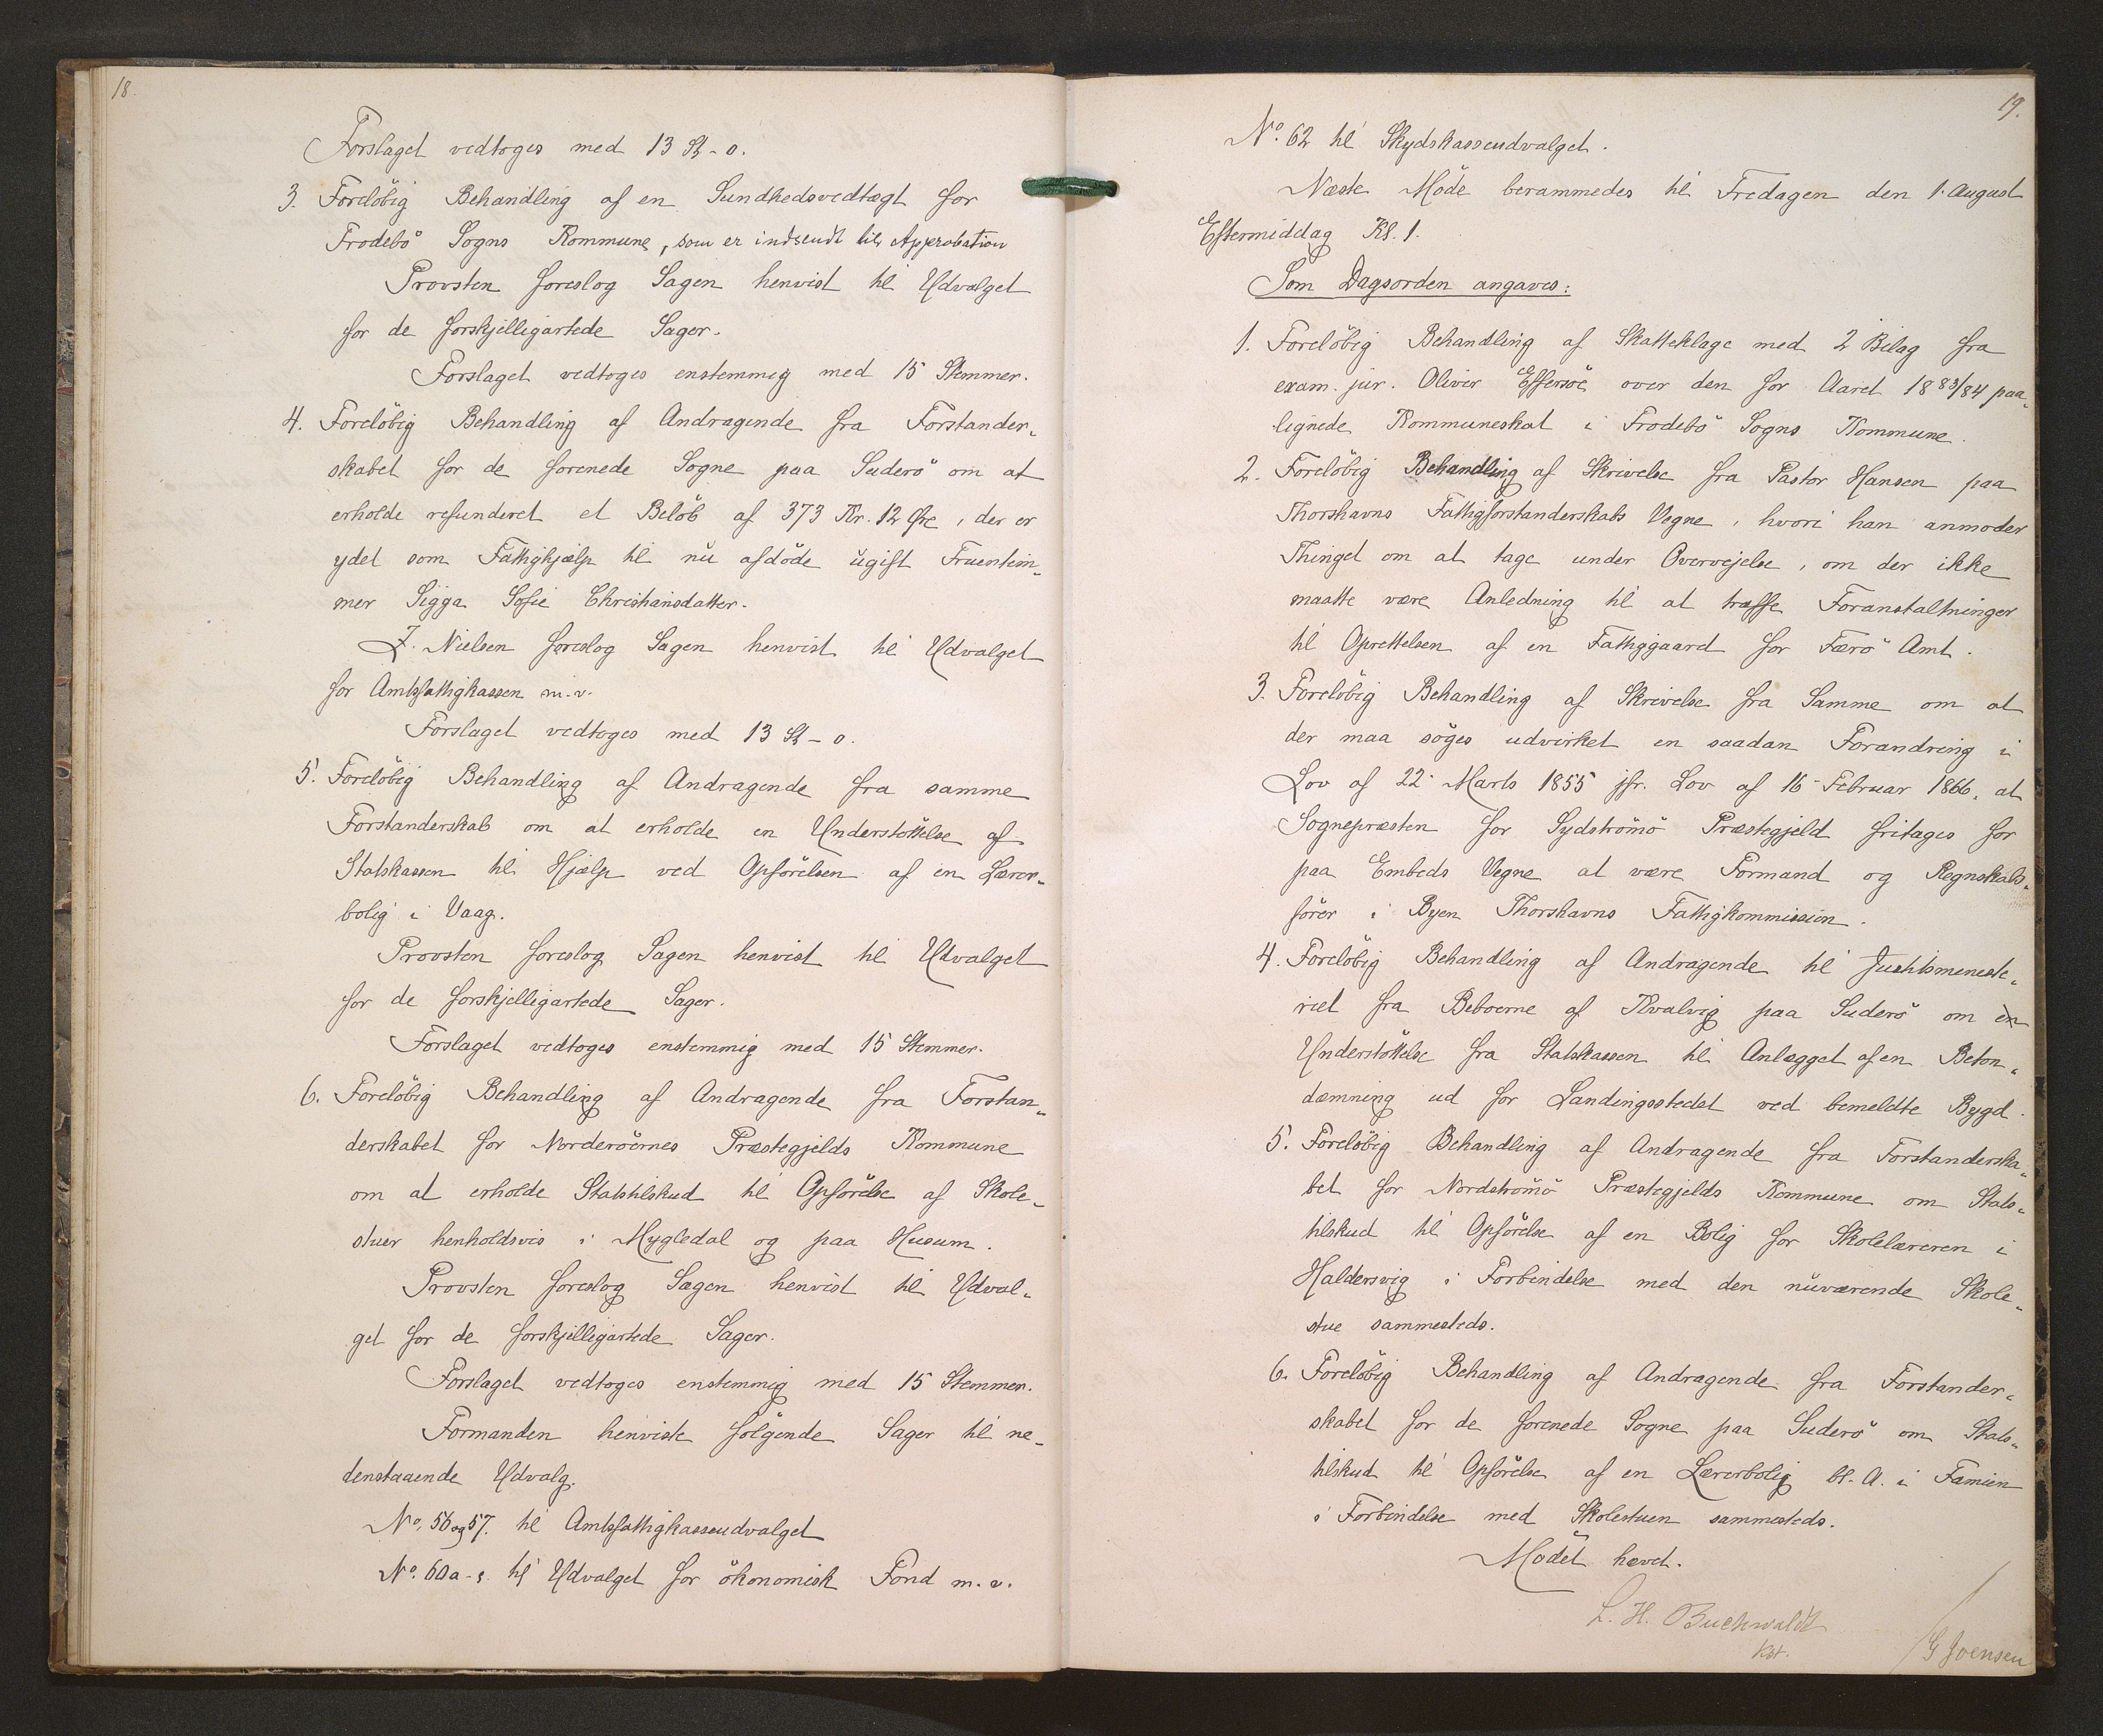 18.
Forslaget vedtoges med 13 St - 0.
3. Foreløbig Behandling af en Sundhedsvedtægt for
Frodebø Sogns Kommune, som er indsendt til Approbation
Provsten foreslog Sagen henvist til Udvalget
for de forskjelligartede Sager.
Forslaget vedtoges enstemmig med 15 Stemmer.
4. Foreløbig Behandling af Andragende fra Forstander-
skabet for de forenede Sogne paa Suderø om at
erholde refunderet et Beløb af 373 Kr. 12 Øre, der er
ydet som Fattighjælp til nu afdøde ugift Fruentim-
mer Sigga Sofie Christiansdatter.
J. Nielsen foreslog Sagen henvist til Udvalget
for Amtsfattigkassen m.v.
Forslaget vedtoges med 13 St - 0.
5. Foreløbig Behandling af Andragende fra samme
Forstanderskab om at erholde en Understøttelse af
Statskassen til Hjælp ved Opførelsen af en Lærer-
bolig i Vaag.
Provsten foreslog Sagen henvist til Udvalget
for de forskjelligartede Sager.
Forslaget vedtoges enstemmig med 15 Stemmer.
6. Foreløbig Behandling af Andragende fra Forstan-
derskabet for Norderøernes Præstegjelds Kommune
om at erholde Statstilskud til Opførelse af Skole-
stuer henholdsvis i Mygledal og paa Husum.
Provsten foreslog Sagen henvist til Udval-
get for de forskjelligartede Sager.
Forslaget vedtoges enstemmig med 15 Stemmer.
Formanden henviste følgende Sager til ne-
denstaaende Udvalg.
No. 56 og 57. til Amtsfattigkasseudvalget
No. 60 a - til Udvalget for økonomisk Fond m.v.
19.
No. 62 til Skydskasseudvalget.
Næste Møde berammedes til Fredagen den 1. August
Eftermiddag Kl. 1.
Som Dagsorden angaves:
1. Foreløbig Behandling af Skatteklage med 2 Bilag fra
exam. jur. Oliver Effersøe over den for Aaret 1883/84 paa-
lignede Kommuneskat i Frodebø Sogns Kommune.
2. Foreløbig Behandling af Skrivelse fra Pastor Hansen paa
Thorshavns Fattigforstanderskabs Vegne, hvori han anmoder
Thinget om at tage under Overvejelse, om der ikke
maatte være Anledning til at træffe Foranstaltninger
til Oprettelsen af en Fattiggaard for Færø Amt.
3. Foreløbig Behandling af Skrivelse fra Samme om at
der maa søges udvirket en saadan Forandring i
Lov af 22 Marts 1855 jfr. Lov af 16 Februar 1866, at
Sognepræsten for Sydstrømø Præstegjeld fritages for
paa Embeds Vegne at være Formand og Regnskabs-
fører i Byen Thorshavns Fattigkommission.
4. Foreløbig Behandling af Andragende til Justitsmineste-
riet fra Beboerne af Kvalvig paa Suderø om en
Understøttelse fra Statskassen til Anlægget af en Beton-
dæmning ud for Landingsstedet ved bemeldte Bygd.
5. Foreløbig Behandling af Andragende fra Forstanderska-
bet for Nordstrømø Præstegjelds Kommune om Stats-
tilskud til Opførelse af en Bolig for Skolelæreren i
Haldersvig i Forbindelse med den nuværende Skole-
stue sammesteds.
6. Foreløbig Behandling af Andragende fra Forstander-
skabet for de forenede Sogne paa Suderø om Stats-
tilskud til Opførelse af en Lærerbolig bl. A. i Famien
i Forbindelse med Skolestuen sammesteds.
Mødet hævet.
L. H. Buchwaldt
kst.
/ G Joensen